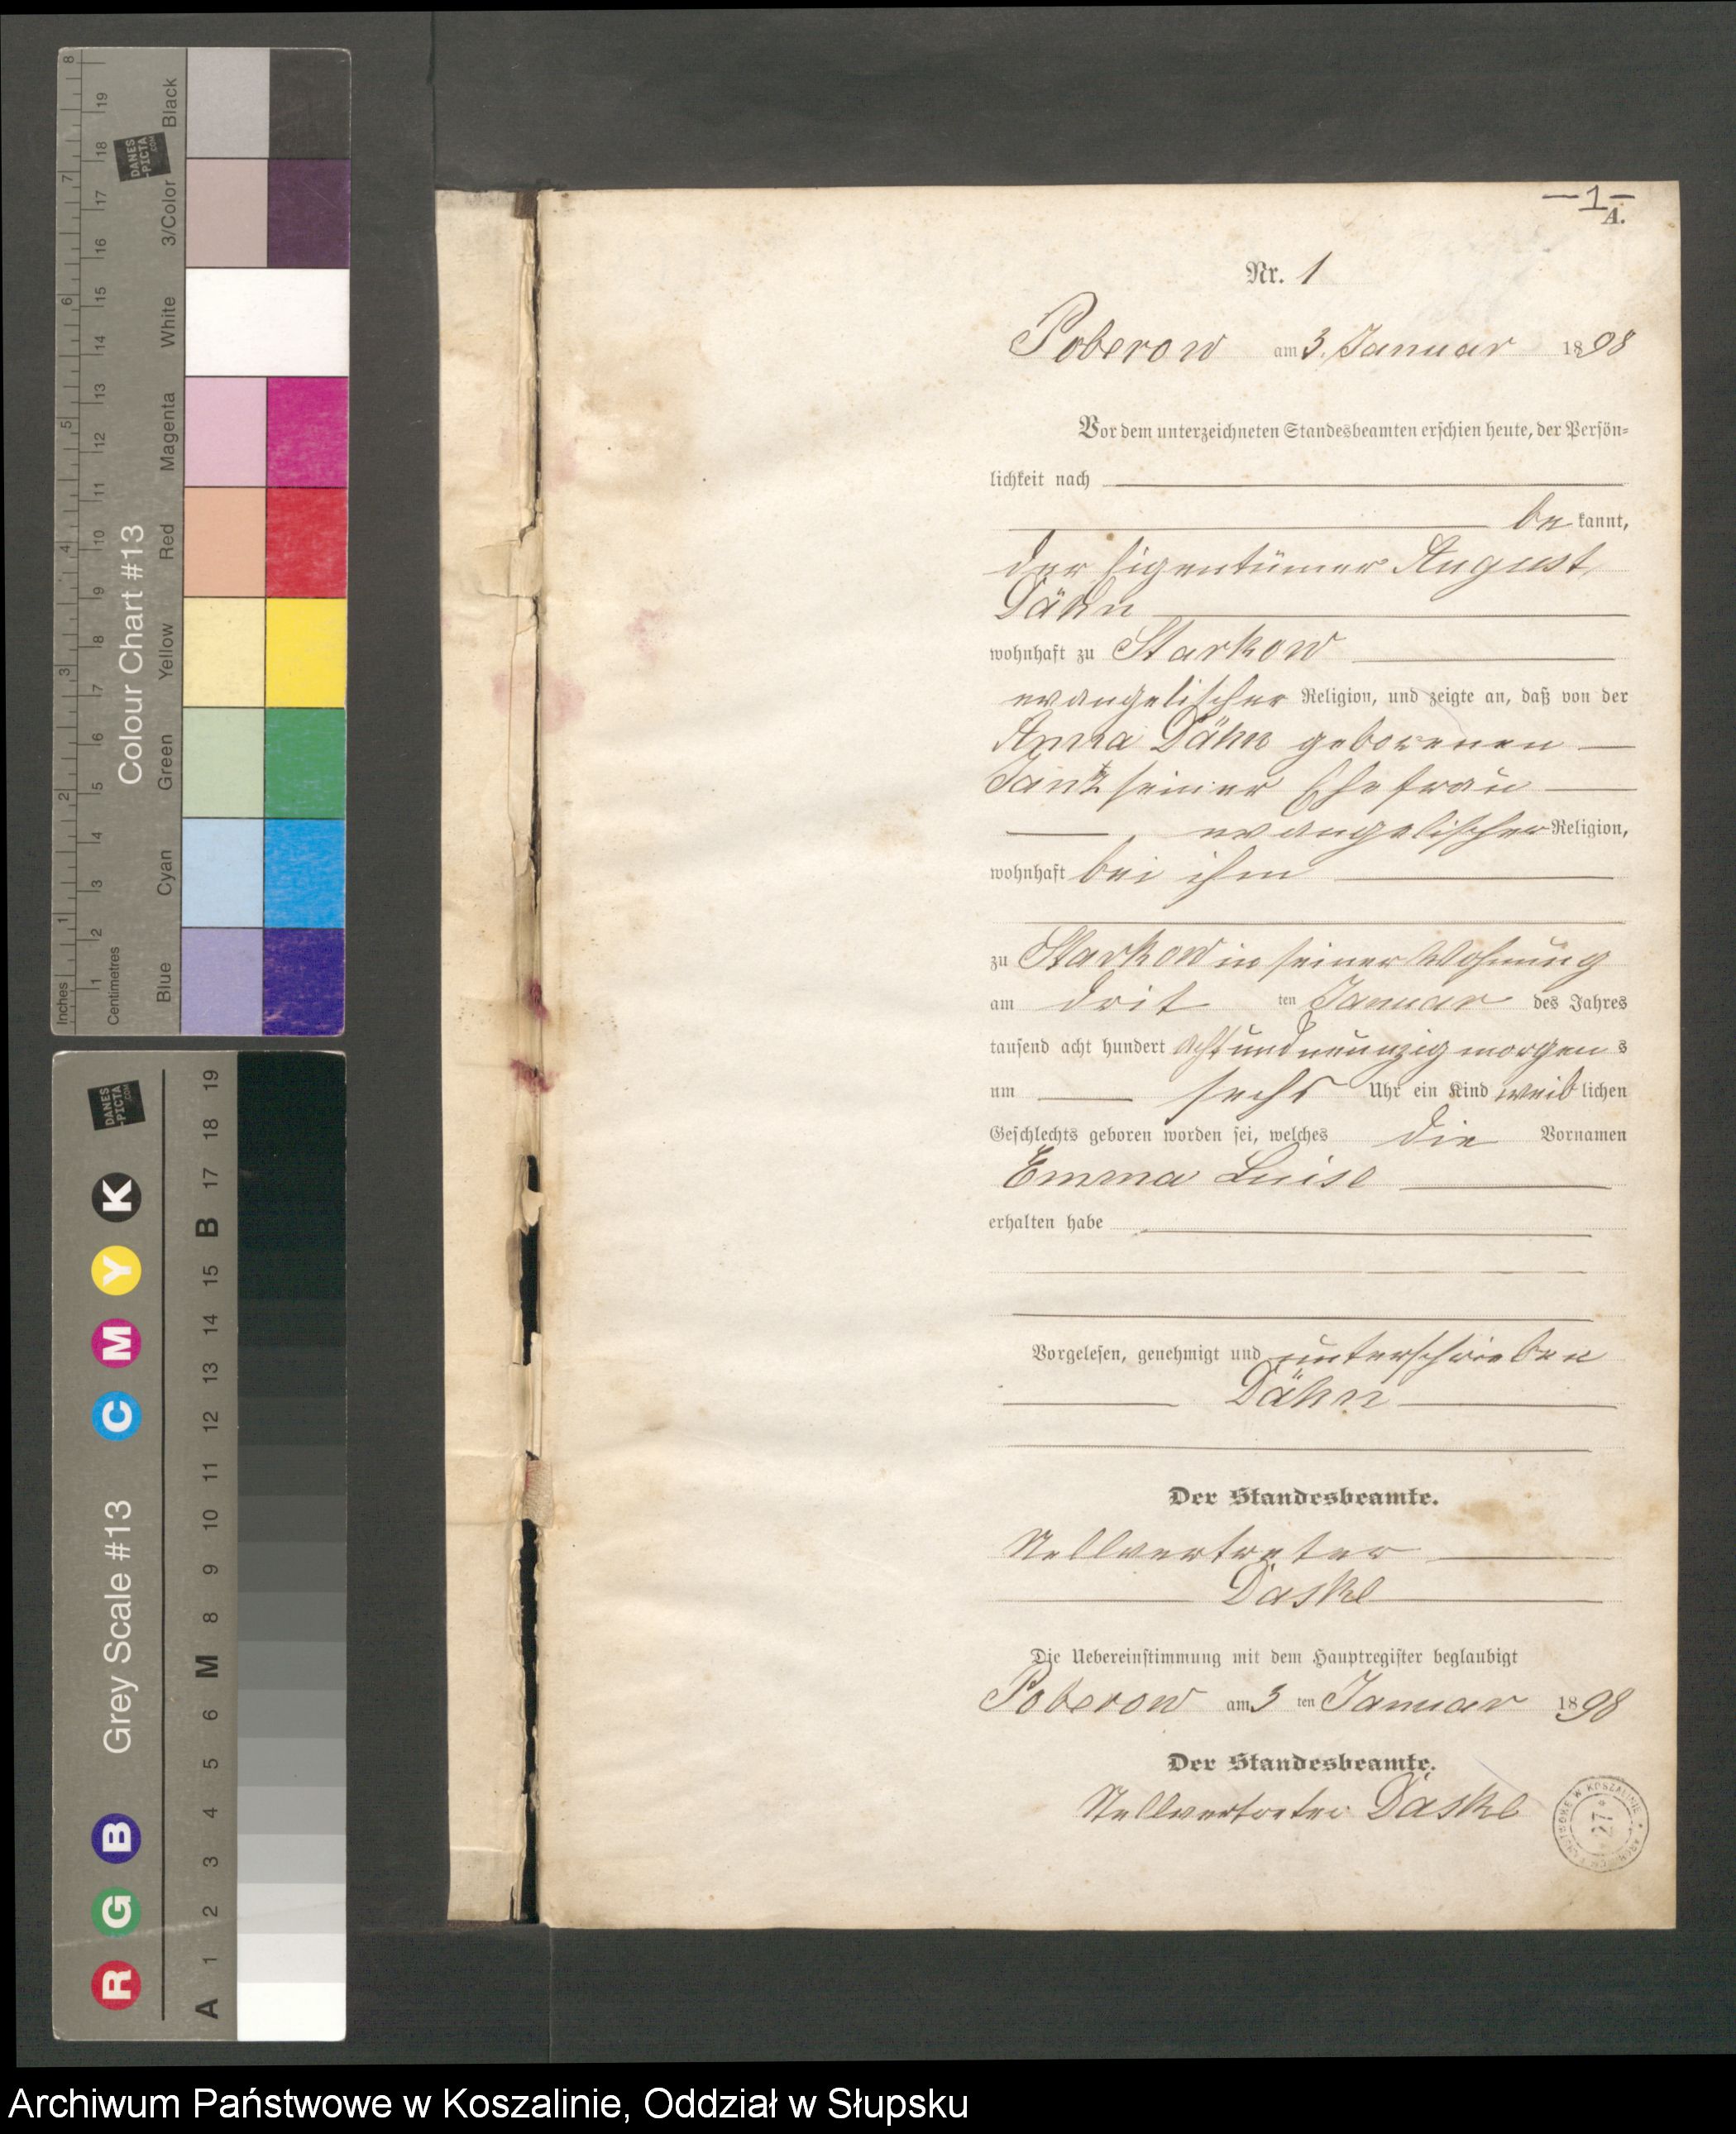 8
7
6
5
4
3
2
1
Inches
19
18
17
16
15
14
13
12
11
10
9
8
7
6
5
4
3
2
1
Centimetres
DANES
-PICTA
.COM
Colour Chart #13
Black
3/Color
White
Magenta
Red
Yellow
Green
Cyan
Blue
DANES
-PICTA
.COM
Grey Scale #13
K
Y
M
C
B
G
R
19
18
17
B
15
14
13
12
11
10
9
8
M
6
5
4
3
2
1
A
—1—
A.
Nr. 1
Poberow am 3. Januar 1898
Vor dem unterzeichneten Standesbeamten erschien heute, der Persön-
lichkeit nach
be kannt,
der Eigentümer August
Dähn
wohnhaft zu Starkow
evangelischer Religion, und zeigte an, daß von der
Anna Dähn geborenen
Jantz seiner Ehefrau
, evangelischer Religion,
wohnhaft bei ihm
zu Starkow in seiner Wohnung
am drit ten Januar des Jahres
tausend acht hundert achtundneunzig morgen s
um sechs Uhr ein Kind weib lichen
Geschlechts geboren worden sei, welches die Vornamen
Emma Luise
erhalten habe
Vorgelesen, genehmigt und unterschrieben
Dähn
Der Standesbeamte.
Stellvertreter
Daske
Die Uebereinstimmung mit dem Hauptregister beglaubigt
Poberow am 3 ten Januar 1898
Der Standesbeamte.
Stellvertreter Daske
W KOSZALINIE * ARCHIWUM
27
Archiwum Państwowe w Koszalinie, Oddział w Słupsku